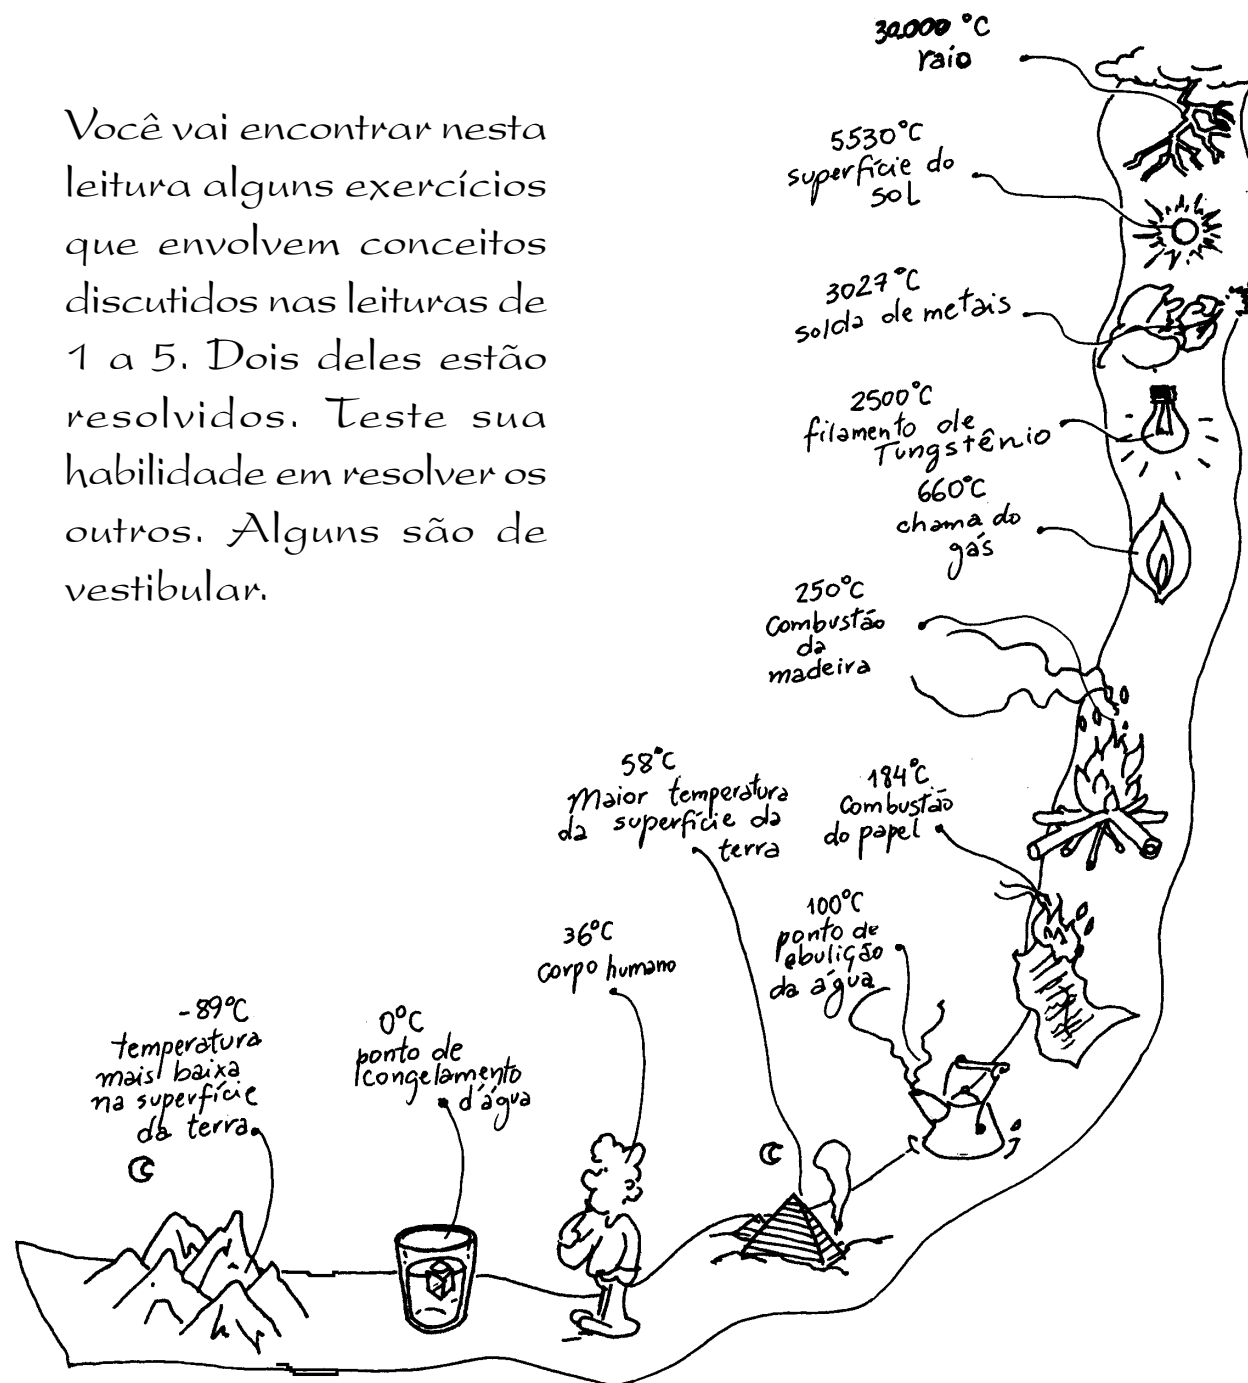 Você vai encontrar nesta
leitura alguns exercícios
que envolvem conceitos
discutidos nas leituras de
1 a 5. Dois deles estão
resolvidos. Teste sua
habilidade em resolver os
outros. Alguns são de
vestibular.
30.000 °C
raio
5530°C
superfície do
sol
3027°C
solda de metais
2500°C
filamento de
Tungstênio
660°C
chama do
gás
250°C
Combustão
da
madeira
58°C
Maior temperatura
da superfície da
terra
184°C
Combustão
do papel
100°C
ponto de
ebulição
da água
36°C
corpo humano
0°C
ponto de
congelamento
d'água
-89°C
temperatura
mais baixa
na superfície
da terra